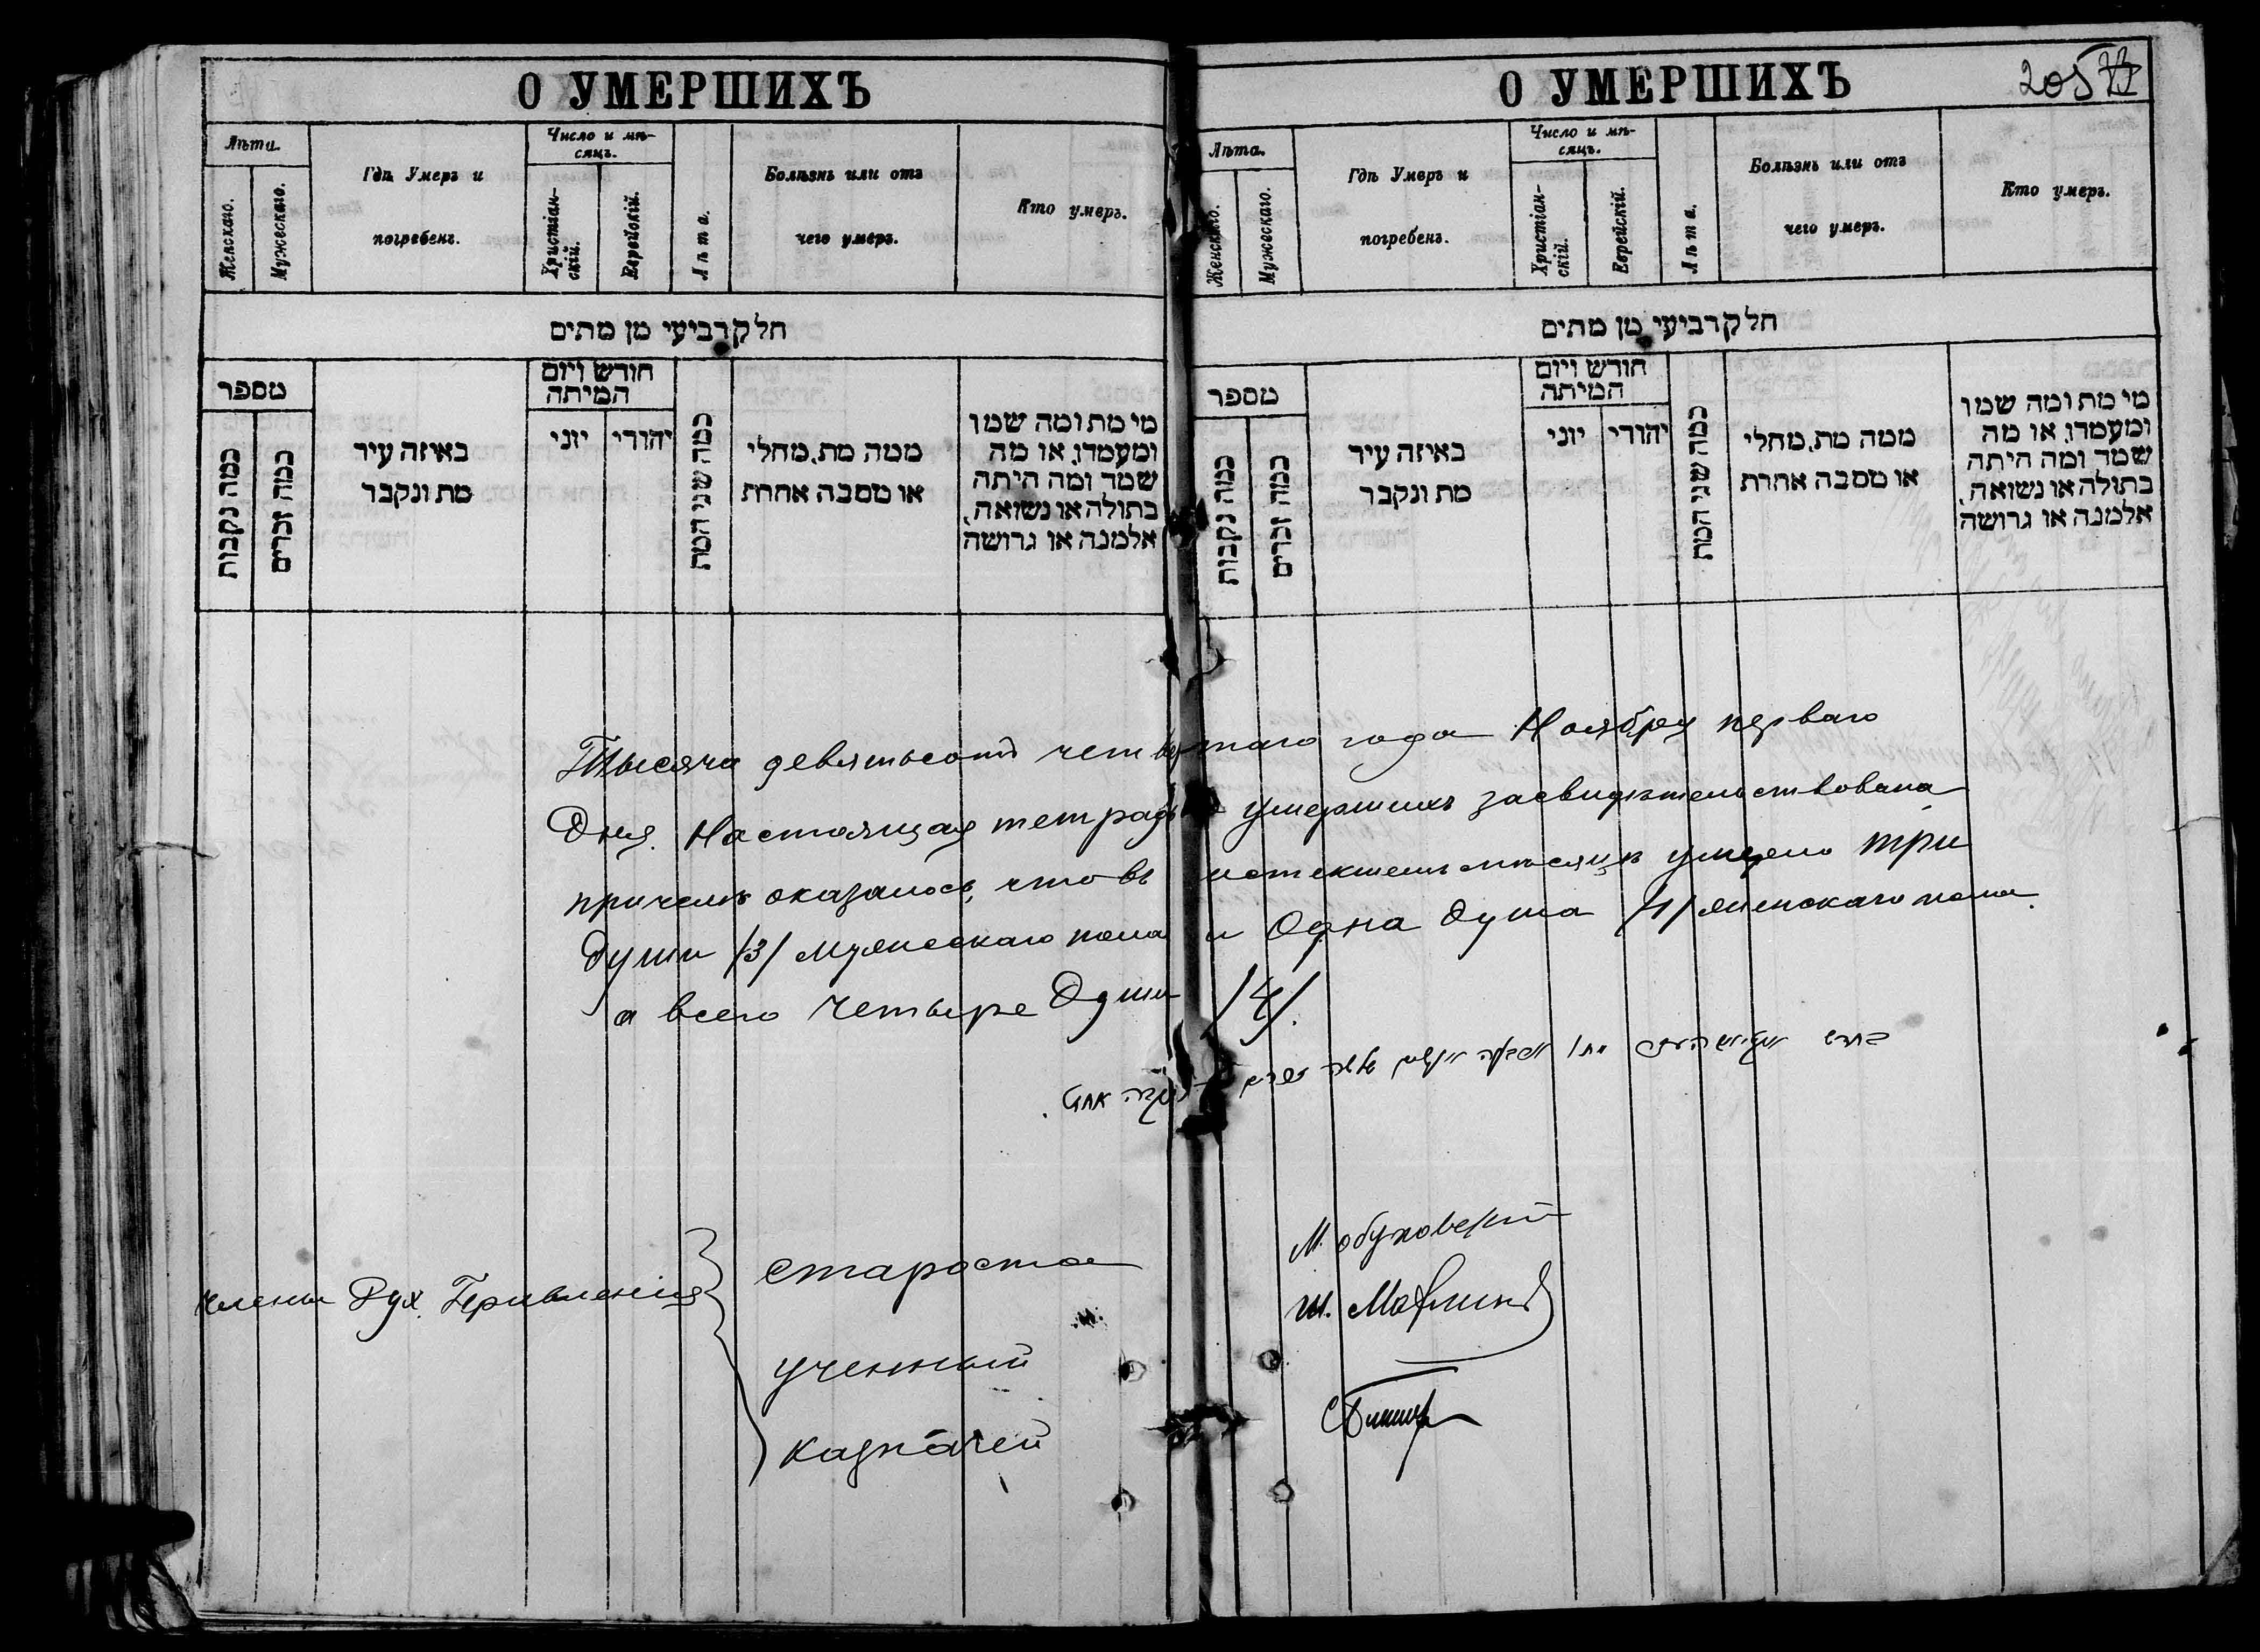 О УМЕРШИХЪ
Лѣта.
Женскаго.
Мужескаго.
Гдѣ Умеръ и
погребенъ.
Число и мѣ-
сяцъ.
Христіан-
скій.
Еврейскій.
Лѣта.
Болѣзнь или отъ
чего умеръ.
Кто умеръ.
חלק רביעי מן מתים
מספר
כמה נקבות
כמה זכרים
באיזה עיר
מת ונקבר
חודש ויום
המיתה
יוני
יהודי
כמה שני המת
ממה מת, מחלי
או מסבה אחרת
מי מת ומה שמו
ומעמדו, או מה
שמה ומה היתה
בתולה או נשואה,
אלמנה או גרושה
О УМЕРШИХЪ
205
Лѣта.
Женскаго.
Мужескаго.
Гдѣ Умеръ и
погребенъ.
Число и мѣ-
сяцъ.
Христіан-
скій.
Еврейскій.
Лѣта.
Болѣзнь или отъ
чего умеръ.
Кто умеръ.
חלק רביעי מן מתים
מספר
כמה נקבות
כמה זכרים
באיזה עיר
מת ונקבר
חודש ויום
המיתה
יוני
יהודי
כמה שני המת
ממה מת, מחלי
או מסבה אחרת
מי מת ומה שמו
ומעמדו, או מה
שמה ומה היתה
בתולה או נשואה,
אלמנה או גרושה
Тысяча девятьсотъ четвертаго года Ноября перваго
Дня. Настоящая тетрадь умершихъ засвидѣтельствована
причемъ оказалось, что въ истекшемъ мѣсяцѣ умерло три
души /3/ мужескаго пола и Одна душа /1/ женскаго пола.
а всего Четыре Души /4/.
члены Дух. Правленія
староста
М. Обуховскій
ученный
Ш.
казначей